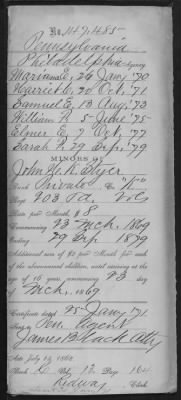 No. 147,485
Pennsylvania
Philadelphia Agency
Maria E, 26 Jany '70
Harriet C, 20 Oct. '71
Samuel E, 13 Aug. '73
William R, 5 June '75
Elmer E, 7 Oct. '77
Sarah P. 29 Sep. '79
MINORS OF
John H. K. Styer
Rank Private Co. "H"
Regt 203 Pa. Vols
Rate per Month, $8
Commencing 23 Mch. 1869
Ending 29 Sep 1879
Additional sum of $2 per month for each
of the aforenamed children, until arriving at the
age of 16 years, commencing 23 day
of Mch. 1869
Certificate dated 25 Jany '71
Sent to Pen. Agent
James Black Atty
Act July 14 1862
Book C Vol. 12 Page 164
Ridway Clerk